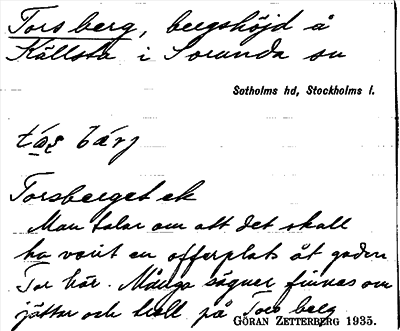 Torsberg, bergshöjd å
Källsta i Sorunda sn
Sotholms hd, Stockholms l.
bärj
Torsberget ek
Man talar om att det skall
ha varit en offerplats åt guden
Tor här. Många sägner finnas om
jättar och troll på Torsberg
GÖRAN ZETTERBERG 1935.